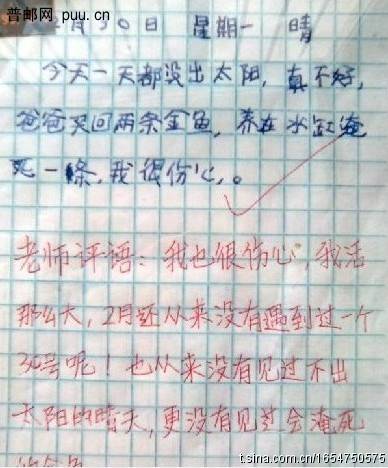 普邮网 puu.cn
月30日 星期一 晴
今天一天都没出太阳，真不好，
爸爸买回两条金鱼，养在水缸淹
死一條，我很伤心。
老师评语：我也很伤心，我活
那么大，2月还从来没有遇到过一个
30号呢！也从来没有见过不出
太阳的晴天，更没有见过会淹死
的金鱼
t.sina.com.cn/1654750575